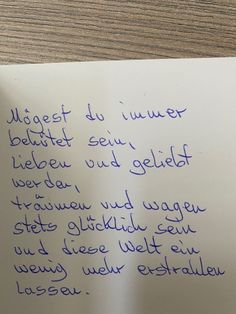 Mögest du immer
behütet sein,
lieben und geliebt
werden,
träumen und wagen
stets glücklich sein
und diese Welt ein
wenig mehr erstrahlen
lassen.